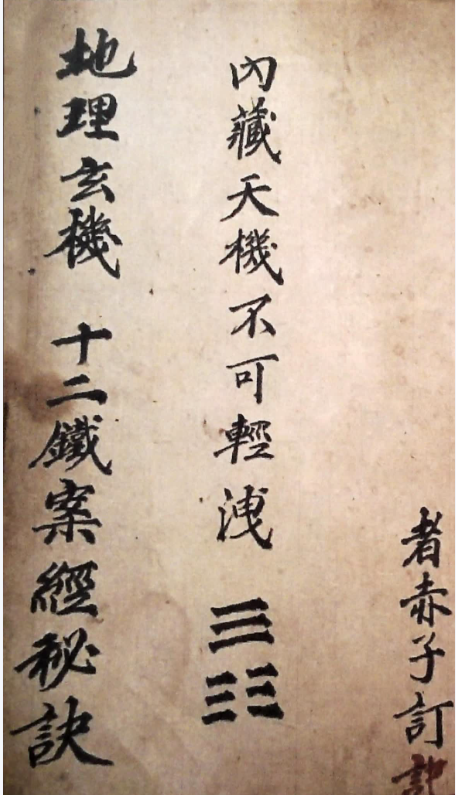 者赤子訂
內藏天機不可輕洩 ☰☷
地理玄機 十二鐵案經秘訣